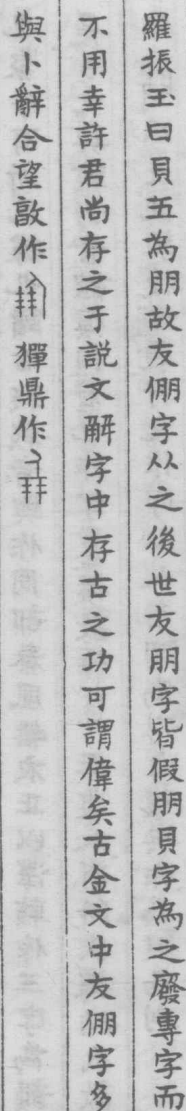 羅振玉曰貝五為朋故友倗字从之後世友朋字皆假朋貝字為之廢專字而
不用幸許君尚存之于説文解字中存古之功可謂偉矣古金文中友倗字多
與卜辭合望敦作 玃鼎作